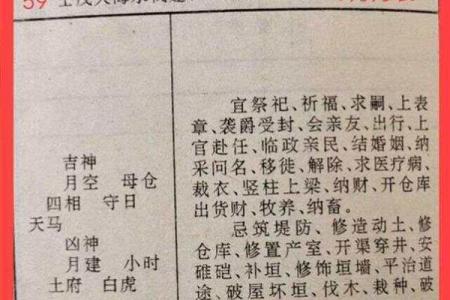 59
吉神
月空 母仓
四相 守日
天马
凶神
月建 小时
土府 白虎
宜祭祀、祈福、求嗣、上表
章、袭爵受封、会亲友、出行、上
官赴任、临政亲民、结婚姻、纳
采问名、移徙、解除、求医疗病、
裁衣、竖柱上梁、纳财、开仓库
出货财、牧养、纳畜。
忌筑堤防、修造动土、修
仓库、修置产室、开渠穿井、安
碓硙、补垣、修饰垣墙、平治道
途、破屋坏垣、伐木、栽种、破